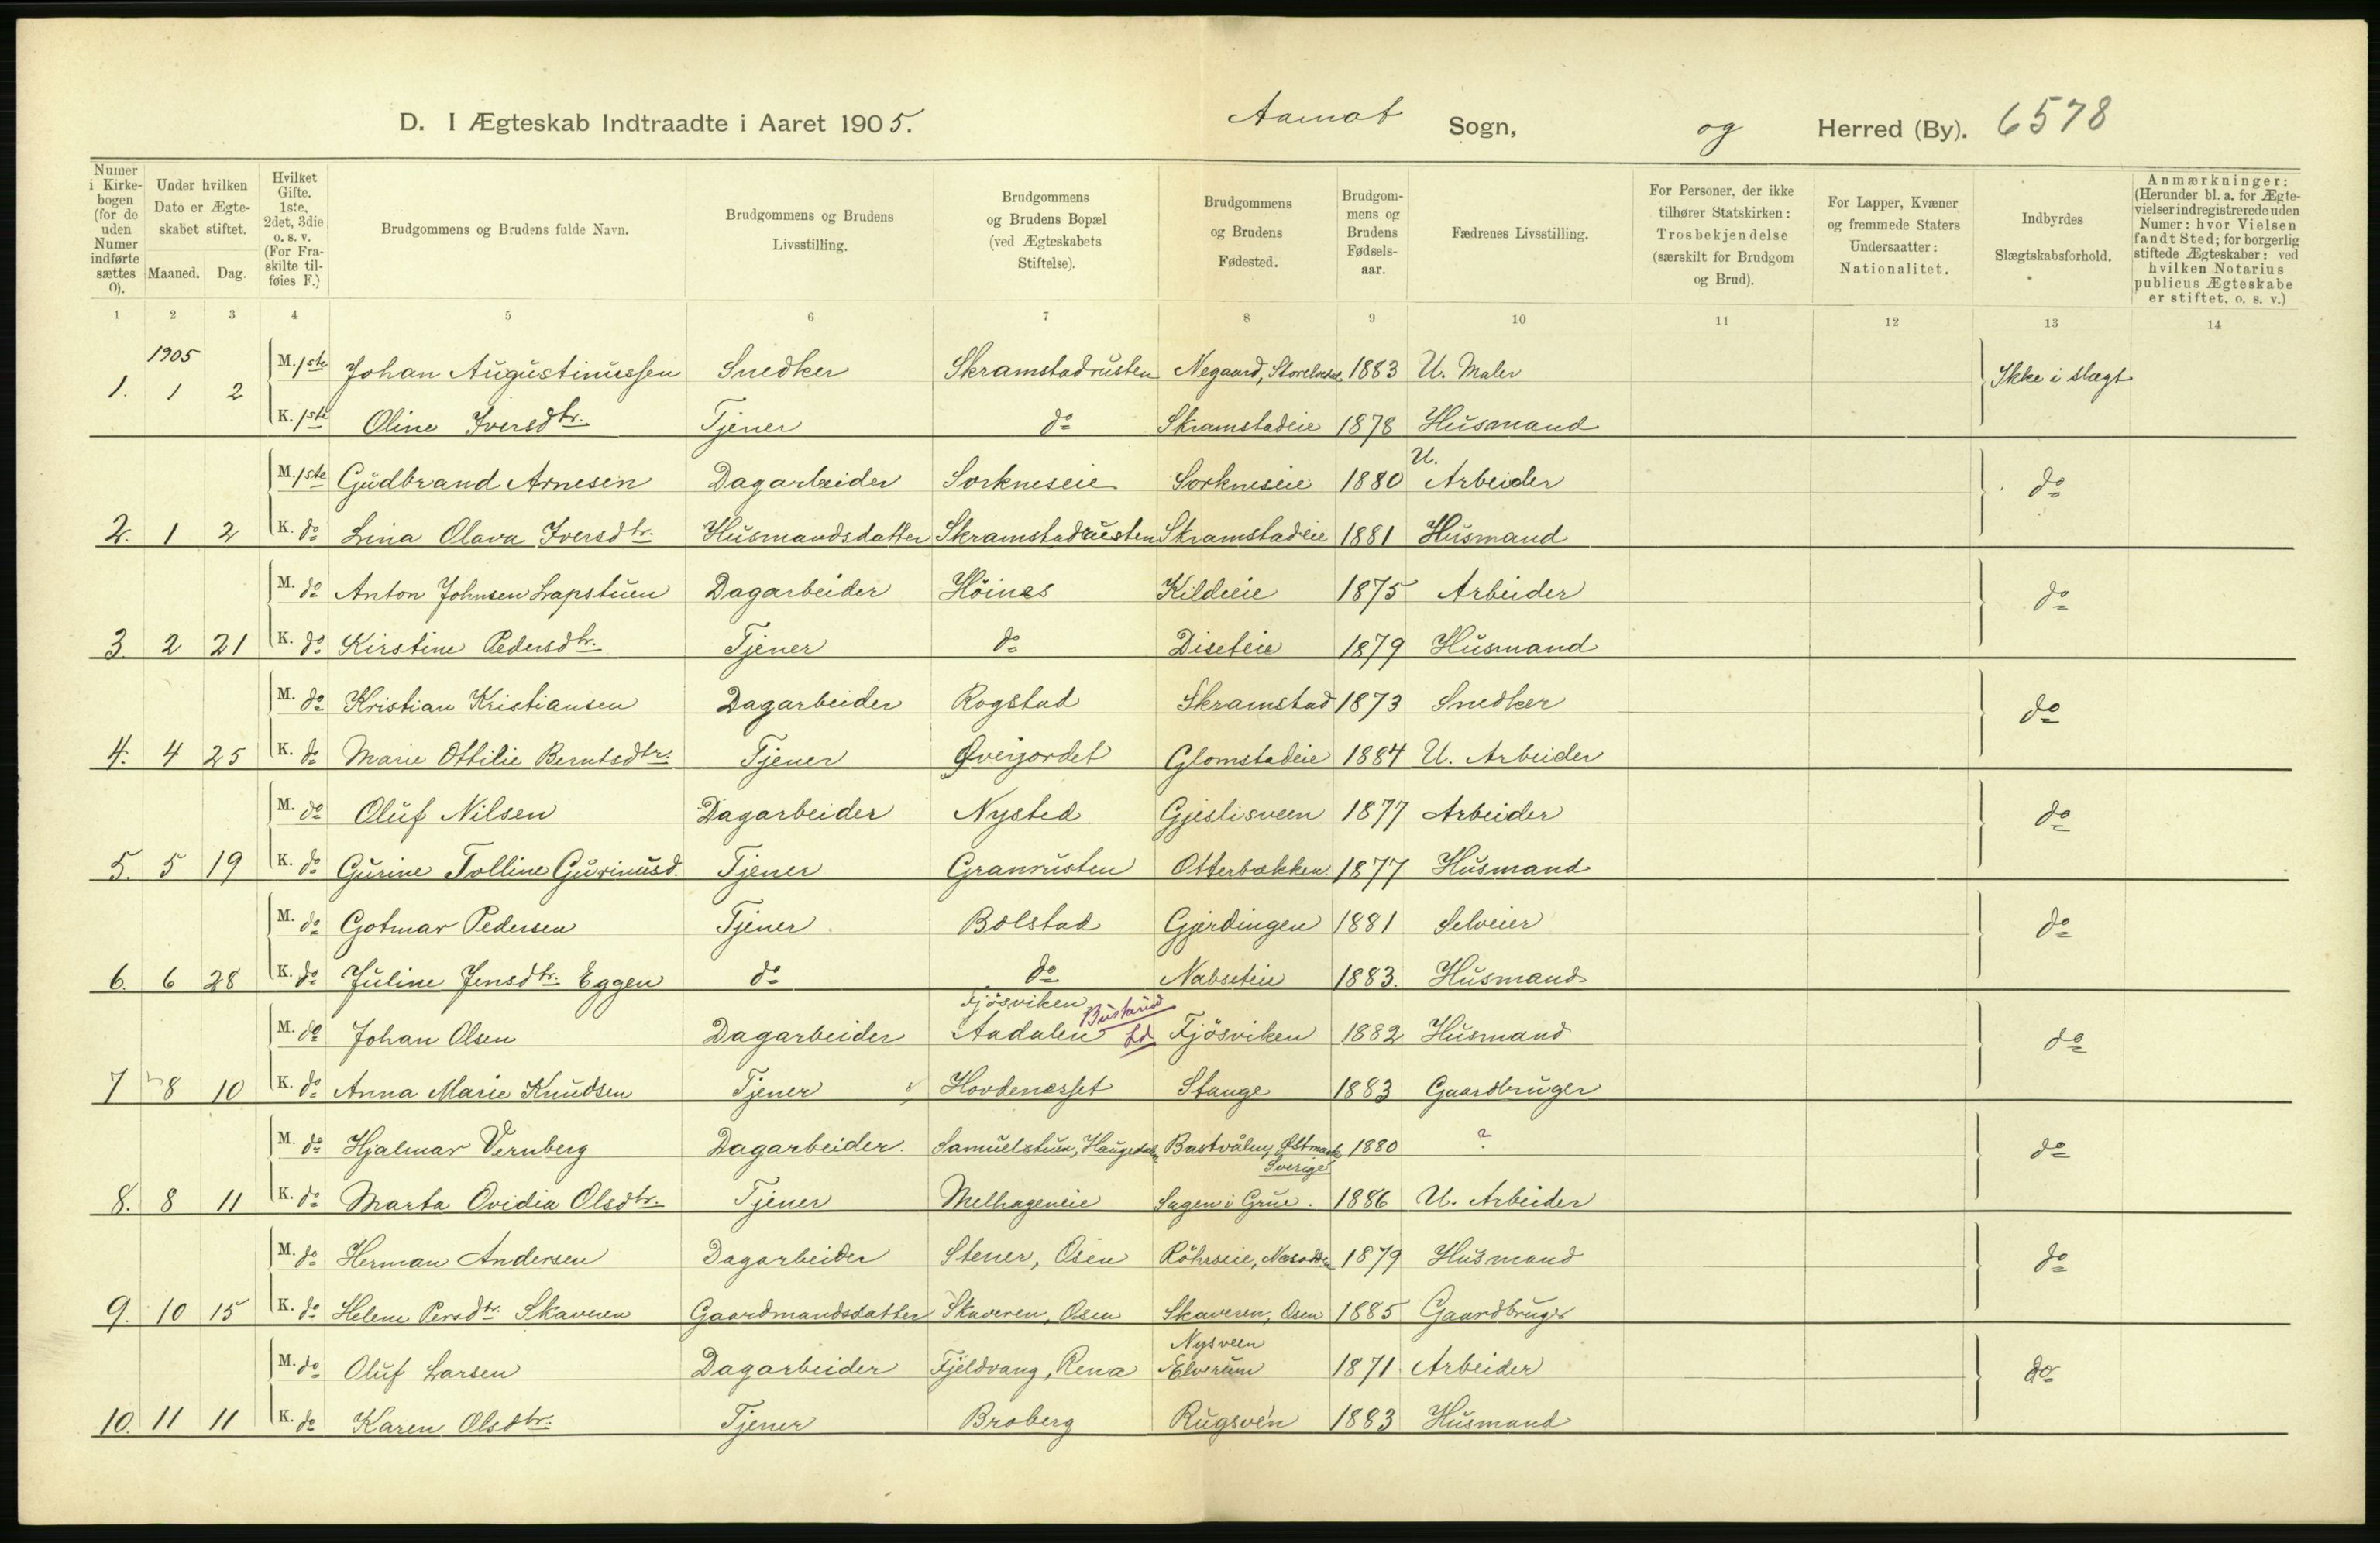 D. I Ægteskab Indtraadte i Aaret 1905. Aamot Sogn, og Herred (By). 6578
Numer i Kirkebogen (for de uden Numer indførte sættes 0).
Under hvilken Dato er Ægteskabet stiftet.
Maaned. Dag.
Hvilket Gifte. 1ste, 2det, 3die o. s. v. (For Fraskilte tilføies F.)
Brudgommens og Brudens fulde Navn.
Brudgommens og Brudens Livsstilling.
Brudgommens og Brudens Bopæl (ved Ægteskabets Stiftelse).
Brudgommens og Brudens Fødested.
Brudgommens og Brudens Fødselsaar.
Fædrenes Livsstilling.
For Personer, der ikke tilhører Statskirken: Trosbekjendelse (særskilt for Brudgom og Brud).
For Lapper, Kvæner og fremmede Staters Undersaatter: Nationalitet.
Indbyrdes Slægtskabsforhold.
Anmærkninger: (Herunder bl. a. for Ægtevielser indregistrerede uden Numer: hvor Vielsen fandt Sted; for borgerlig stiftede Ægteskaber: ved hvilken Notarius publicus Ægteskabe er stiftet, o. s. v.)
1 2 3 4 5 6 7 8 9 10 11 12 13 14
1905
M. 1ste Johan Augustinussen Snedker Skramstadrusten Negaard, 1883 U. Maler Ikke i slægt
1. 1 2 K. 1ste Oline Iversdtr. Tjener do Skramstadeie 1878 Husmand
M. 1ste Gudbrand Arnesen Dagarbeider Sorkneseie Sorkneseie 1880 U. Arbeider do
2. 1 2 K. do Lina Olava Iversdtr. Husmandsdatter Skramstadrusten Skramstadeie 1881 Husmand
M. do Anton Johnsen Lapstuen Dagarbeider Höines Kildeeie 1875 Arbeider do
3. 2 21 K. do Kirstine Pedersdtr. Tjener do Diseteie 1879 Husmand
M. do Kristian Kristiansen Dagarbeider Rogstad Skramstad 1873 Snedker do
4. 4 25 K. do Marie Ottilie Berntsdtr. Tjener Øverjordet Glomstadeie 1884 U. Arbeider
M. do Oluf Nilsen Dagarbeider Nysted Gjeslisveen 1877 Arbeider do
5. 5 19 K. do Gurine Tolline Gurinusd. Tjener Granrusten Otterbækken 1877 Husmand
M. do Gotmar Pedersen Tjener Bolstad Gjerdingen 1881 Selveier do
6. 6 28 K. do Juline Jensdtr. Eggen do do Nabseteie 1883. Husmand
Fjösviken
M. do Johan Olsen Dagarbeider Aadalen Ld Fjösviken 1882 Husmand do
7 8 10 K. do Anna Marie Knudsen Tjener Hovdenæsset Stange 1883 Gaardbruger
M. do Hjalmar Vernberg Dagarbeider. Samuelstuen, Haugedalen Bastvålen, Østmark 1880 ? do
Sverige
8. 8 11 K. do Marta Ovidia Olsdtr. Tjener Melhageneie Sagen i Grue. 1886 U. Arbeider
M. do Herman Andersen Dagarbeider Stener, Osen Röhrseie, Næsodden 1879 Husmand do
9. 10 15 K. do Helene Persdtr. Skaveren Gaardmandsdatter Skaveren, Osen Skaveren, Osen 1885 Gaardbruger
Nysveen
M. do Oluf Larsen Dagarbeider Fjeldvang, Rena Elverum 1871 Arbeider do
10. 11 11 K. do Karen Olsdtr. Tjener Broberg Rugsven 1883 Husmand